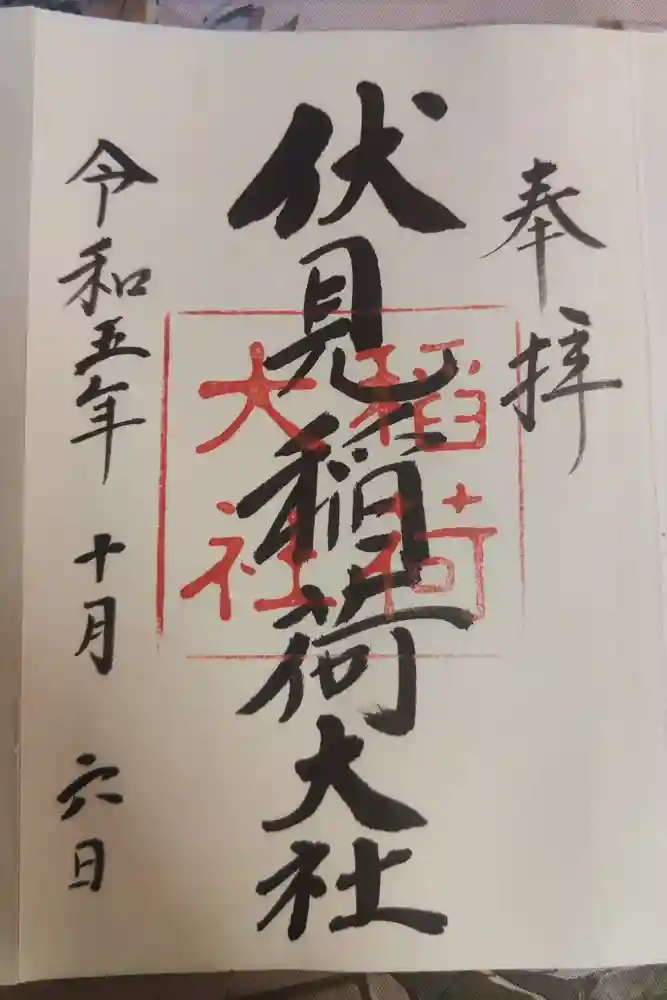 奉拝
伏見稲荷大社
稲荷
大社
令和五年十月六日